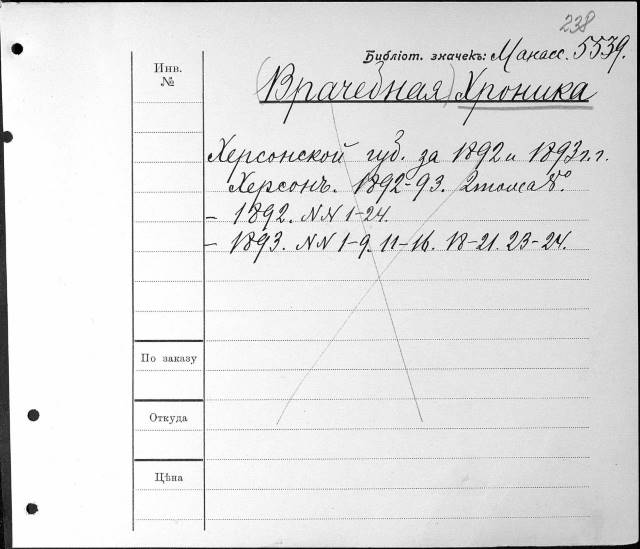 238
Библіот. значекъ: Манасс. 5539.
Инв.
№
(Врачебная) Хроника
Херсонской губ. за 1892 и 1893 г.г.
Херсонъ. 1892-93. 2 тома 8º.
- 1892. NN 1-24.
- 1893. NN 1-9. 11-16. 18-21. 23-24.
По заказу
Откуда
Цѣна